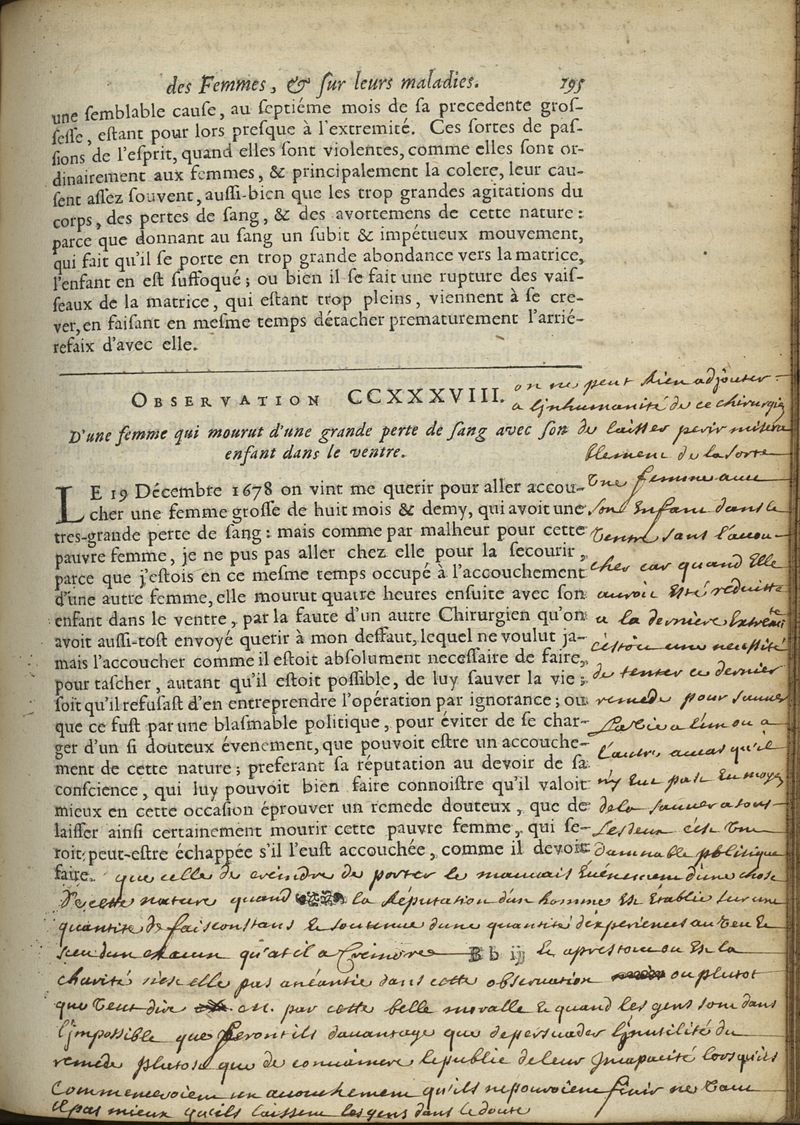 des Femmes, & ſur leurs maladies. 195
une ſemblable cauſe, au ſeptiéme mois de ſa precedente groſ-
ſeſſe, eſtant pour lors preſque à l'extremité. Ces ſortes de paſ-
ſions de l'eſprit, quand elles ſont violentes, comme elles ſont or-
dinairement aux femmes, & principalement la colere, leur cau-
ſent aſſez ſouvent, auſſi-bien que les trop grandes agitations du
corps, des pertes de ſang, & des avortemens de cette nature:
parce que donnant au ſang un ſubit & impétueux mouvement,
qui fait qu'il ſe porte en trop grande abondance vers la matrice,
l'enfant en eſt ſuffoqué; ou bien il ſe fait une rupture des vaiſ-
ſeaux de la matrice, qui eſtant trop pleins, viennent à ſe cre-
ver, en faiſant en meſme temps détacher prematurement l'arrié-
refaix d'avec elle.
OBSERVATION CCXXXVIII.
D'une femme qui mourut d'une grande perte de ſang avec ſon
enfant dans le ventre.
LE 19 Décembre 1678 on vint me querir pour aller accou-
cher une femme groſſe de huit mois & demy, qui avoit une
tres-grande perte de ſang: mais comme par malheur pour cette
pauvre femme, je ne pus pas aller chez elle pour la ſecourir,
parce que j'eſtois en ce meſme temps occupé à l'accouchement
d'une autre femme, elle mourut quatre heures enſuite avec ſon
enfant dans le ventre, par la faute d'un autre Chirurgien qu'on
avoit auſſi-toſt envoyé querir à mon deffaut, lequel ne voulut ja-
mais l'accoucher comme il eſtoit abſolument neceſſaire de faire,
pour taſcher, autant qu'il eſtoit poſſible, de luy ſauver la vie;
ſoit qu'il refuſaſt d'en entreprendre l'opération par ignorance; ou
que ce fuſt par une blaſmable politique, pour éviter de ſe char-
ger d'un ſi douteux évenement, que pouvoit eſtre un accouche-
ment de cette nature; preferant ſa réputation au devoir de ſa
conſcience, qui luy pouvoit bien faire connoiſtre qu'il valoit
mieux en cette occaſion éprouver un remede douteux, que de
laiſſer ainſi certainement mourir cette pauvre femme, qui ſe-
roit peut-eſtre échappée s'il l'euſt accouchée, comme il devoit
faire.
on ne peut rien adjouter
a l'inhumanité de ce chirurgien
de laisser perir misera
blement de la sorte
une femme avec
son enfant dans le
ventre sans l'accou
cher car quand elle
auroit esté reduitte
a la derniere extremité
c'estoit une necessité
de tenter ce dernier
remede pour sauver
la vie a l'un ou a
l'autre
n'y eut pas de moyen
de la sauver a tous
les deux c'est une
damnable politique
que celle de craindre de porter le mauvais evenement d'une chose
de cette nature quand la reputation d'un homme est etablie sur une
quantité de fais constans et soutenue d'une quantité d'experiences au veu et
sceu d'un chacun qu'at il a craindre
Bb ij
et apres tout ou est la
charité n'est elle pas anéantie dans cette observation ou plutot
que veut dire on par cette belle moralle et quand les gens sont dans
l'impossible que feront ils davantage que de persuader l'inutilité du
remede plutost que de convaincre le public de leur incapacité lorsqu'ils
commenceroient un accouchement qu'ils ne pouroient finir ne vaut
il pas mieux qu'ils laissent les gens dans le doute